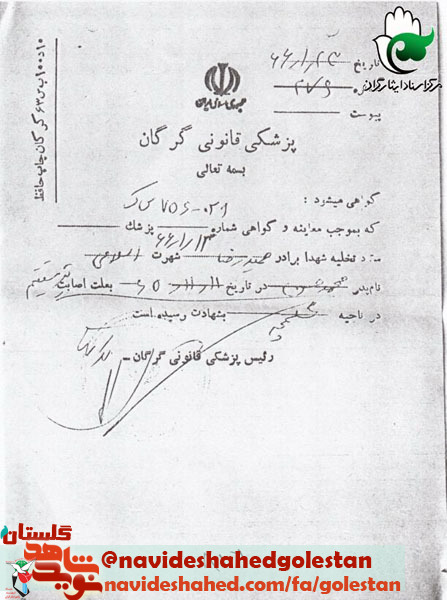 مرکز اسناد ایثارگران
تاریخ ۶۶/۱/۲۴
شماره ۴۷۹
پیوست
جمهوری اسلامی ایران
پزشکی قانونی گرگان
بسمه تعالی
گواهی میشود :
که بموجب معاینه و گواهی شماره پزشك
۶۶/۱/۱۳
تخلیه شهدا برادر حمیدرضا شهرت اسلامی
نام پدر در تاریخ بعلت اصابت تیر مستقیم
در ناحیه بشهادت رسیده است
رئیس پزشکی قانونی گرگان
گرگان چاپ حافظ
گلستان
نوید شاهد
@navideshahedgolestan
navideshahed.com/fa/golestan